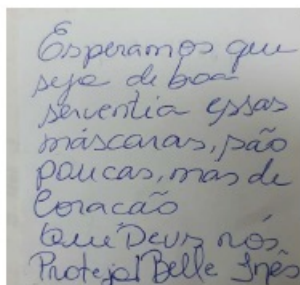 Esperamos que
seja de boa
serventia essas
máscaras, são
poucas, mas de
Coração
Que Deus nós
Proteja! Belle Inês